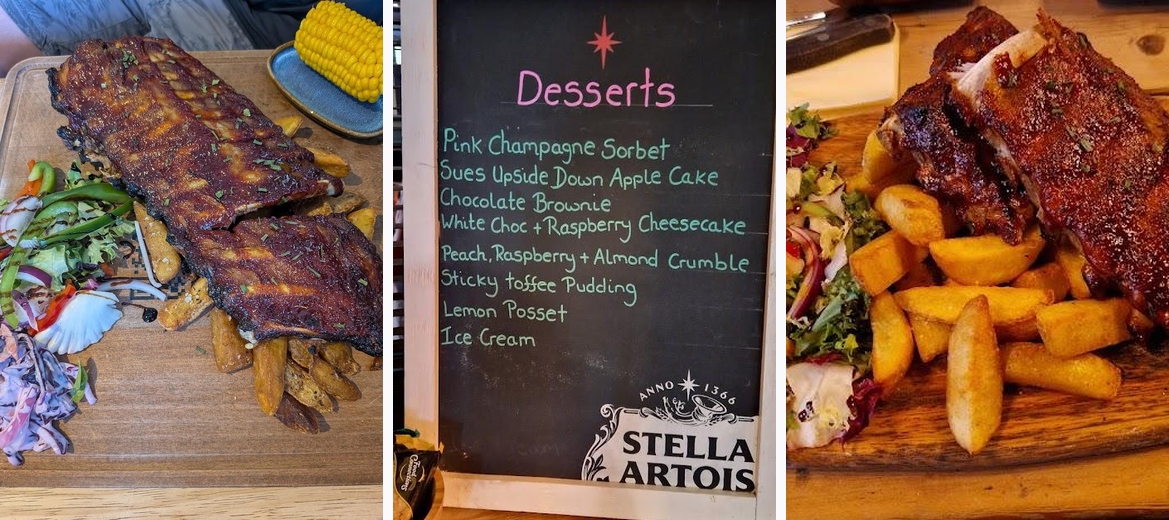 Desserts
Pink Champagne Sorbet
Sues Upside Down Apple Cake
Chocolate Brownie
White Choc + Raspberry Cheesecake
Peach, Raspberry + Almond Crumble
Sticky toffee Pudding
Lemon Posset
Ice Cream
ANNO 1366
STELLA
ARTOIS